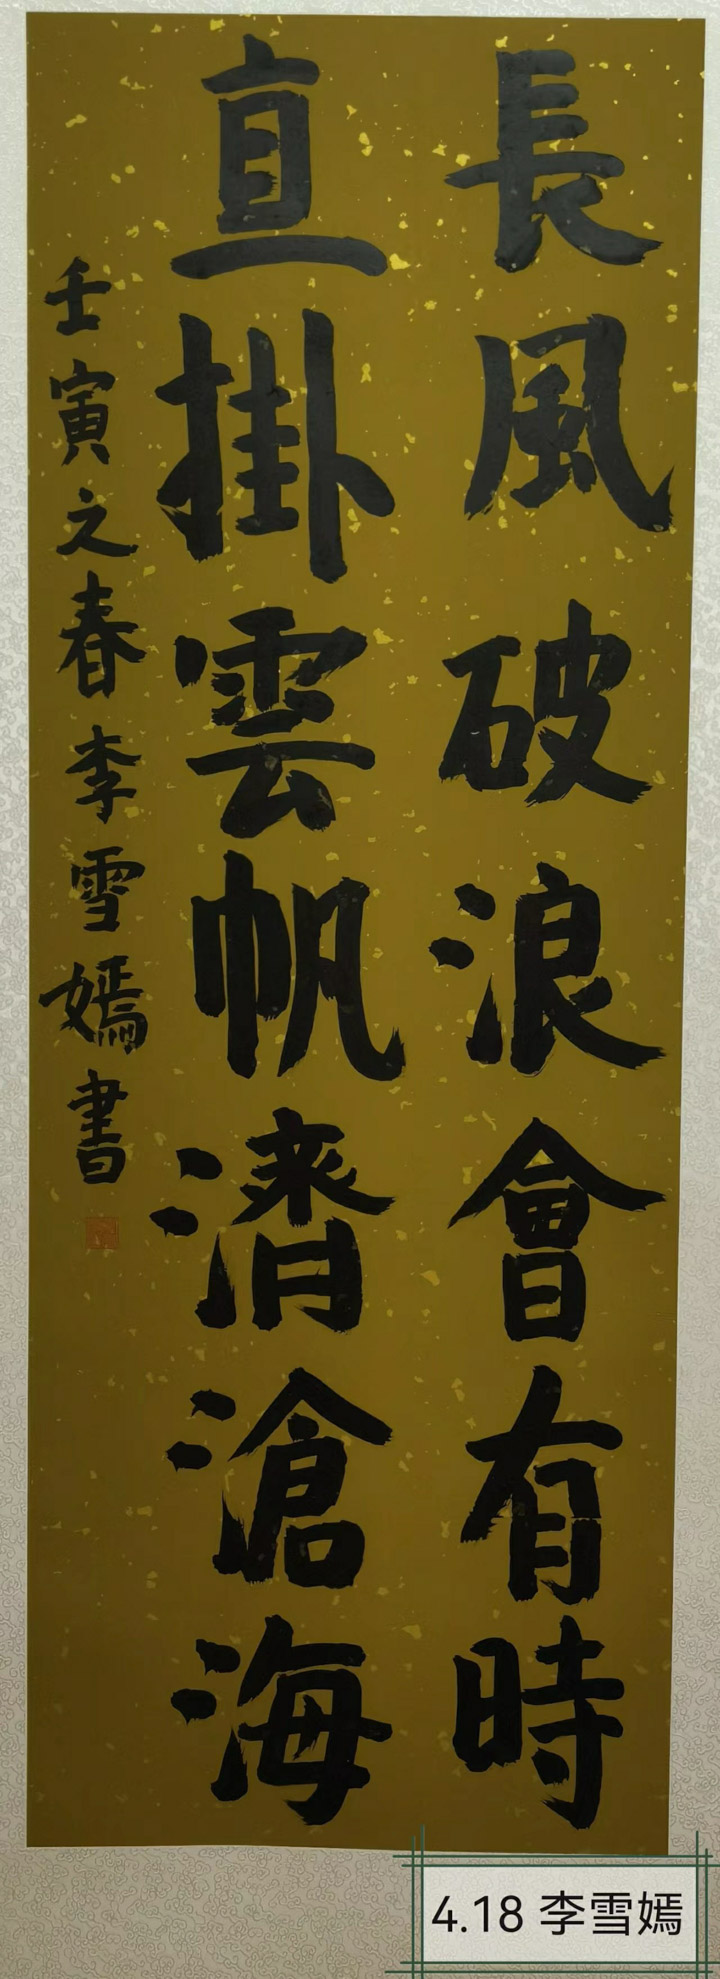 長風破浪會有時
直掛雲帆濟滄海
壬寅之春李雪嫣書
4.18 李雪嫣